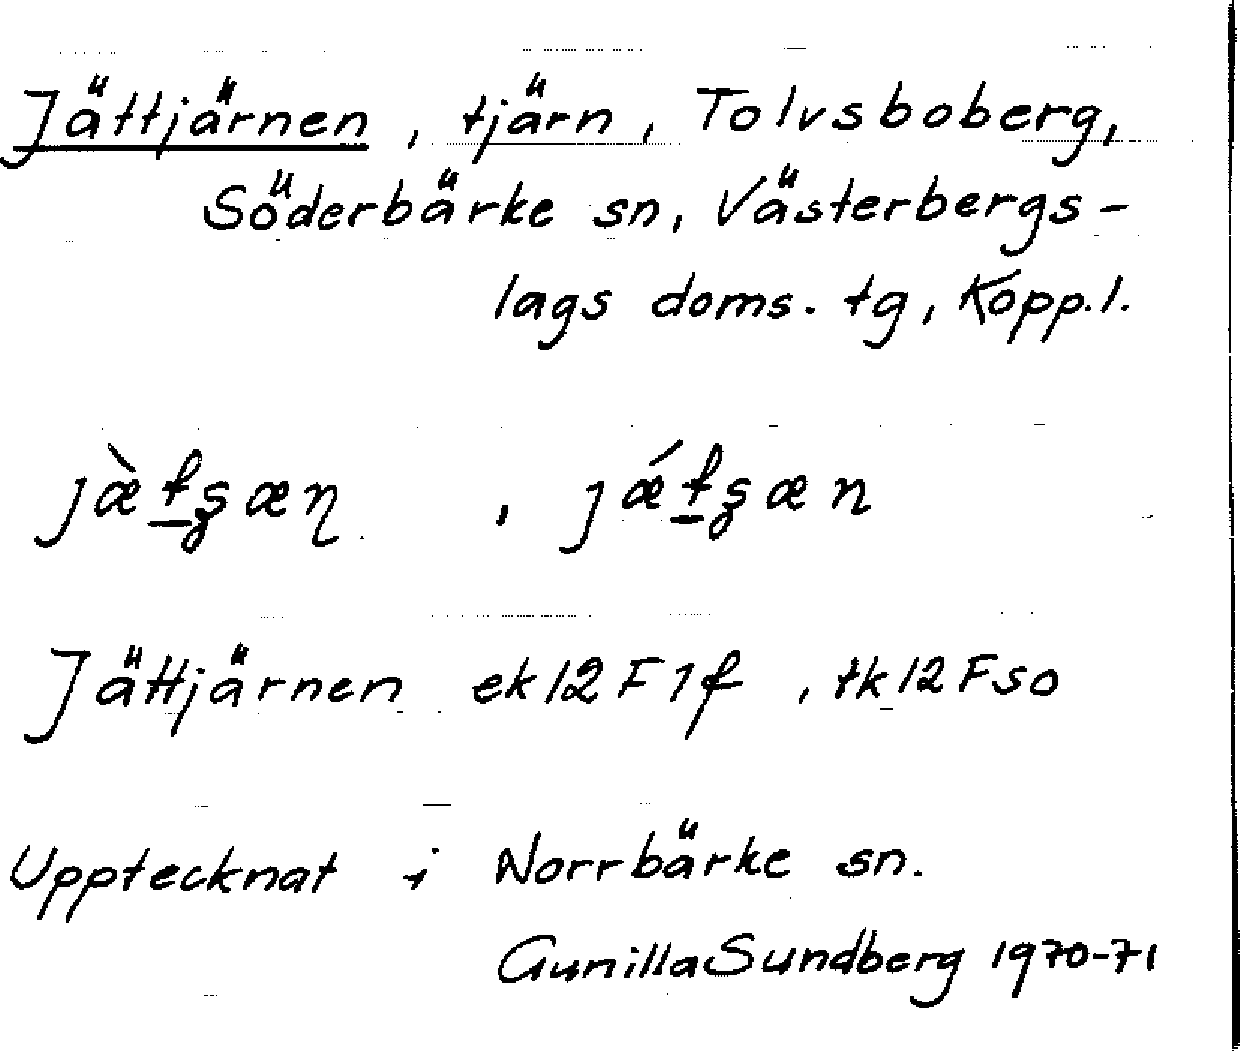 Jättjärnen, tjärn, Tolvsboberg,
Söderbärke sn, Västerbergs-
lags doms. tg, Kopp.l.
Jättjärnen ek 12 F 1f, tk 12 F so
Upptecknat i Norrbärke sn.
Gunilla Sundberg 1970-71